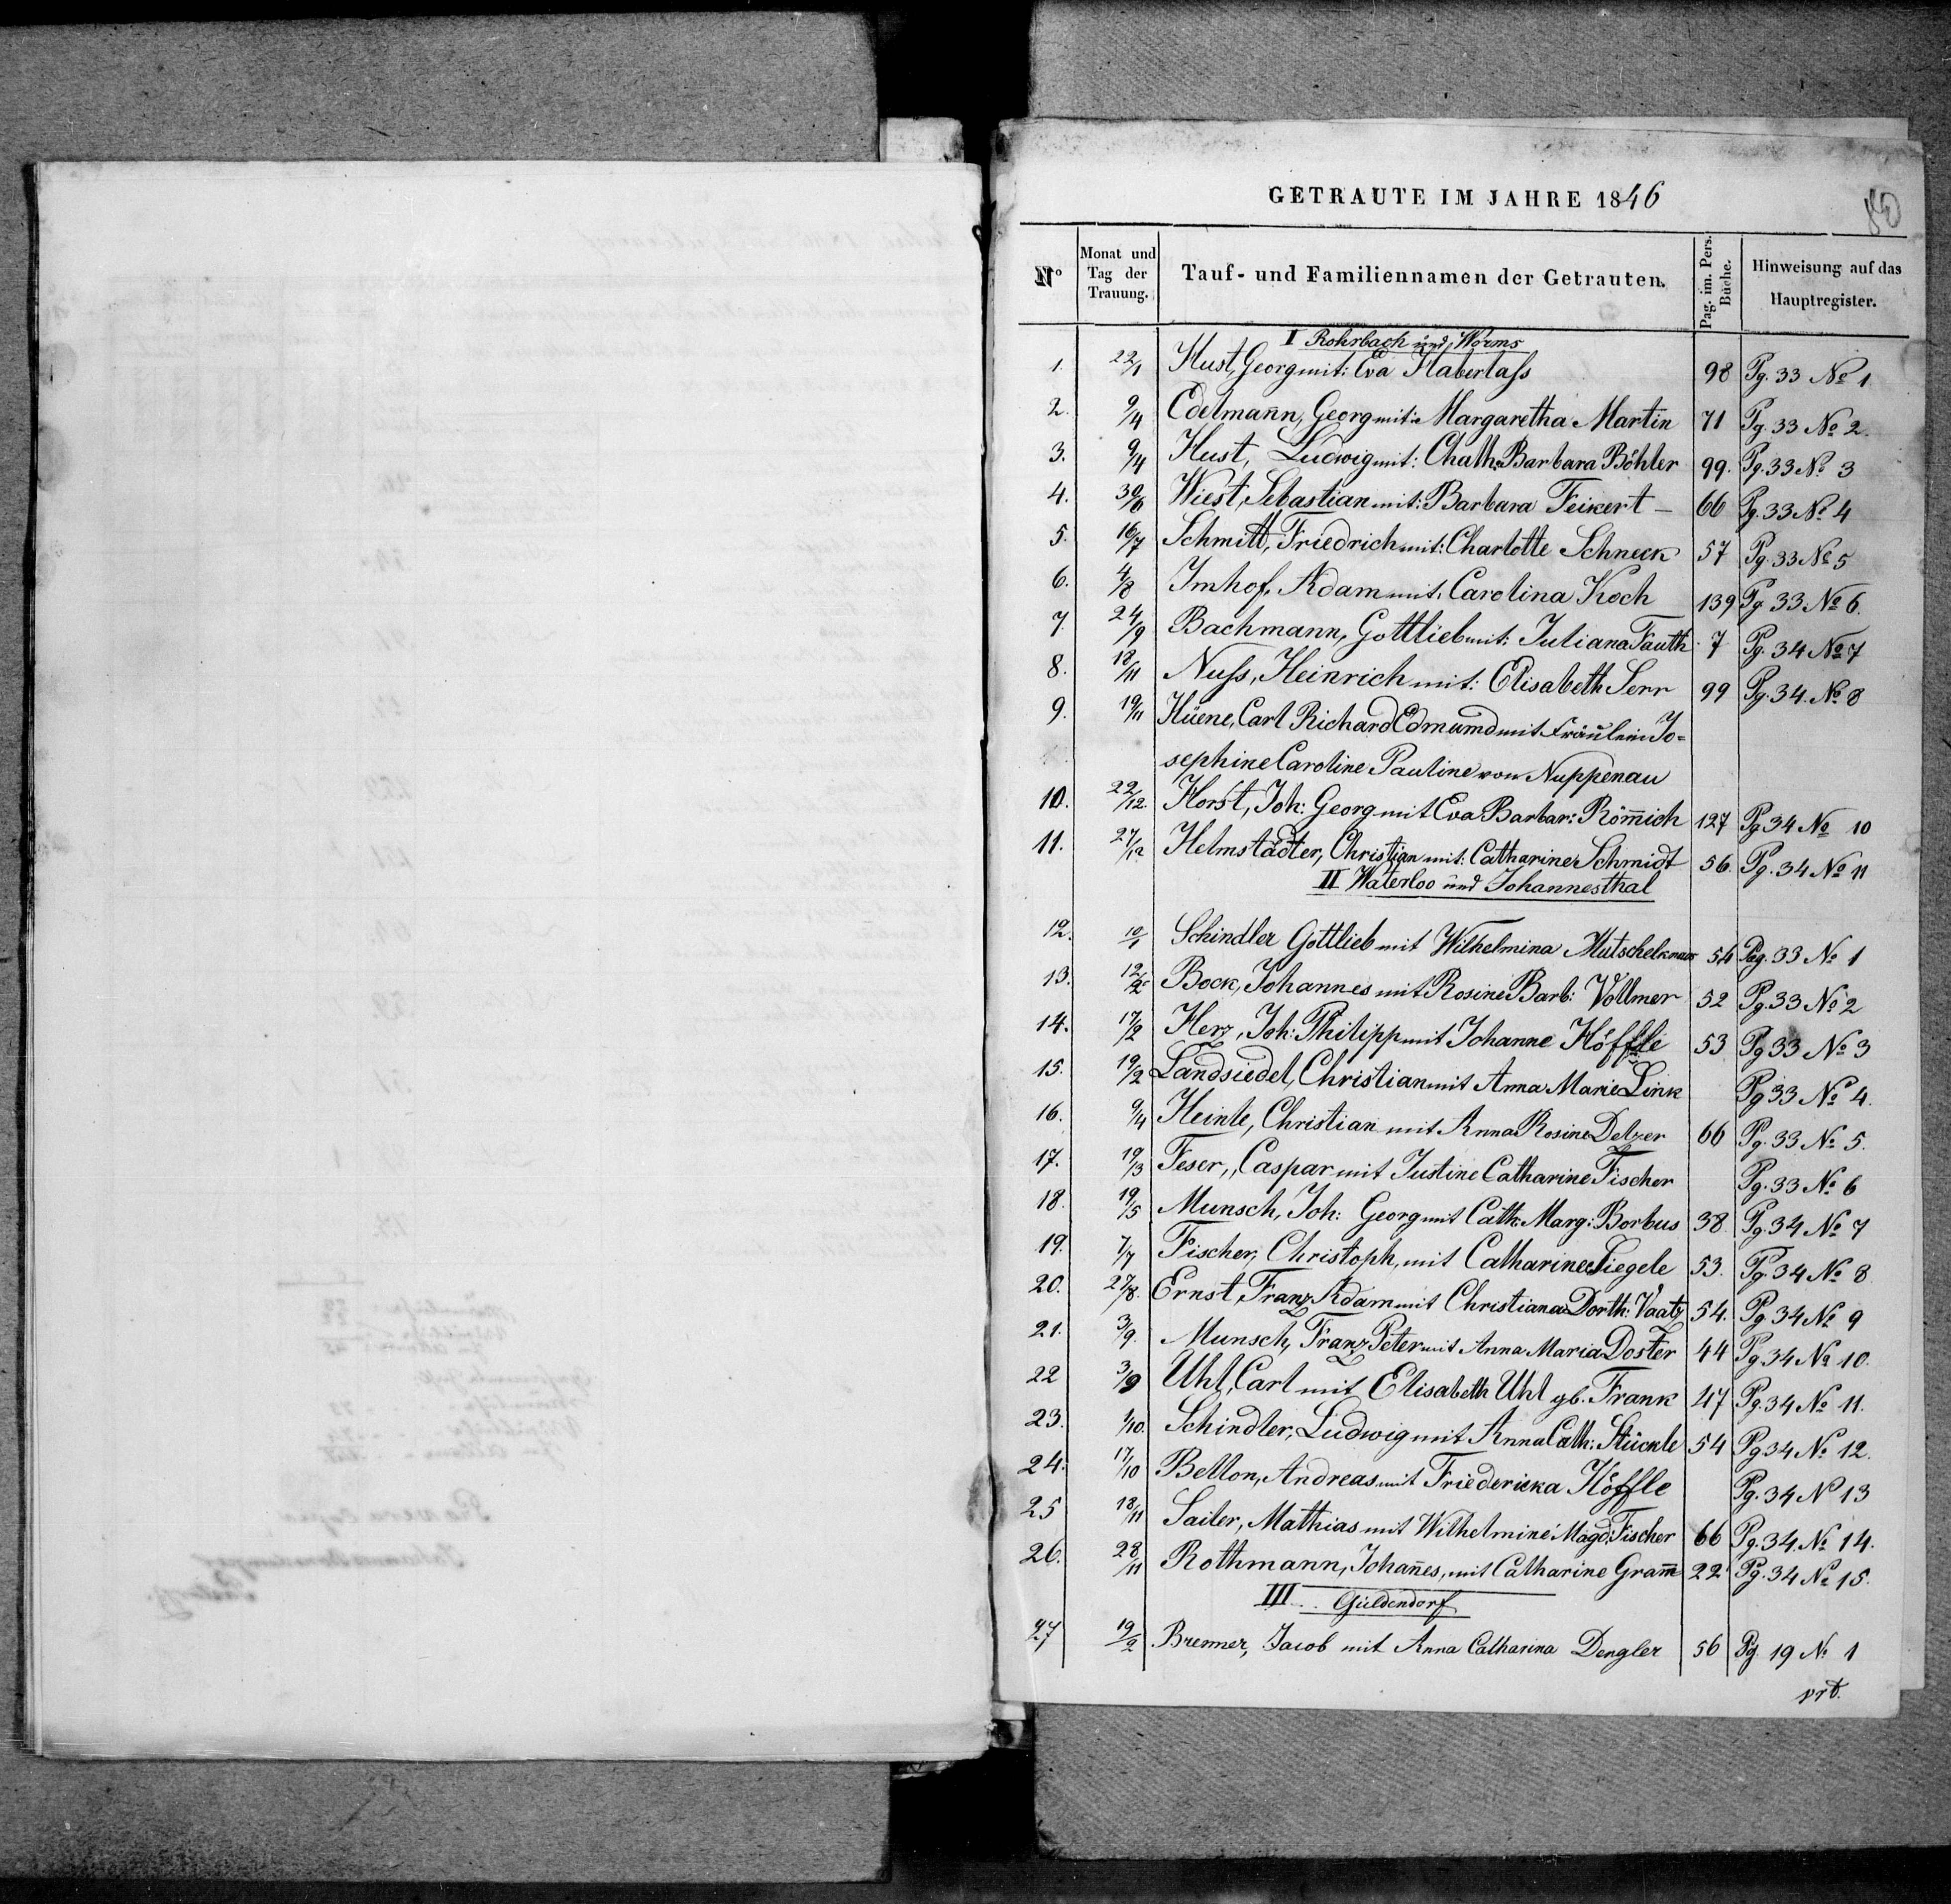 GETRAUTE IM JAHRE 1846
80
Nº Monat und Tag der Trauung. Tauf- und Familiennamen der Getrauten. Pag. im. Pers. Buche. Hinweisung auf das Hauptregister.
I Rohrbach und Worms
1. 22/1 Hust, Georg mit: Eva Haberlass 98 Pg. 33 Nº 1
2. 9/4 Edelmann, Georg mit: Margaretha Martin 71 Pg. 33 Nº 2.
3. 9/4 Hust, Ludwig mit: Chath. Barbara Böhler 99. Pg. 33 Nº 3
4. 30/6 Wiest, Sebastian mit: Barbara Feikert – 66 Pg. 33 Nº 4
5. 16/7 Schmitt, Friedrich mit: Charlotte Schneck 57 Pg. 33 Nº 5
6. 4/8 Imhof, Adam mit. Carolina Koch 139 Pg. 33 Nº 6.
7. 24/9 Bachmann, Gottlieb mit: Juliana Fauth 7 Pg. 34 Nº 7
8. 18/11 Nuss, Heinrich mit: Elisabeth Serr 99 Pg. 34. Nº 8
9. 19/11 Hüene, Carl Richard Edmund mit Fräulein Jo=
sephine Caroline Pauline von Nuppenau
10. 22/12. Horst, Joh: Georg mit Eva Barbar: Röm̄ich 127 Pg 34 Nº 10
11. 27/12 Helmstädter, Christian mit: Catharine Schmidt 56. Pg. 34 Nº 11
II Waterloo und Johannesthal
12. 10/1 Schindler Gottlieb mit Wilhelmina Mutschelknaus 54 Pag. 33 Nº 1
13. 12/2 Bock, Johannes mit Rosine Barb: Vollmer 52 Pg. 33 Nº 2
14. 17/2 Herz, Joh: Philipp mit Johanne Höffle 53 Pg 33 Nº 3
15. 19/2 Landsiedel, Christian mit Anna Marie Link Pg 33 Nº 4.
16. 9/4 Heinle, Christian mit Anna Rosine Delzer 66 Pg. 33 Nº 5.
17. 19/3 Feser, Caspar mit Justine Catharine Fischer Pg. 33 Nº 6
18. 19/5 Munsch, Joh: Georg mit Cath: Marg: Borbus 38 Pg. 34 Nº 7
19. 7/7 Fischer, Christoph, mit Catharine Siegele 53. Pg. 34 Nº 8
20. 27/8. Ernst, Franz Adam mit Christiana Dorth: Vaatz 54. Pg. 34 Nº 9
21. 3/9. Munsch, Franz Peter mit Anna Maria Doster 44 Pg. 34 Nº 10.
22 3/9 Uhl, Carl mit Elisabeth Uhl gb. Frank 47 Pg. 34 Nº 11.
23. 1/10. Schindler, Ludwig mit Anna Cath: Stückle 54 Pg 34 Nº 12.
24. 17/10 Bellon, Andreas mit Friedericka Höffle Pg. 34 Nº 13
25 18/11 Sailer, Mathias mit Wilhelmine Magd: Fischer 66 Pg. 34. Nº 14.
26. 28/11 Rothmann, Johan̄es, mit Catharine Gram̄ 22 Pg. 34 Nº 15.
III. Güldendorf
27 19/2 Brenner, Jacob mit Anna Catharina Dengler 56 Pg. 19 Nº 1
vrt.